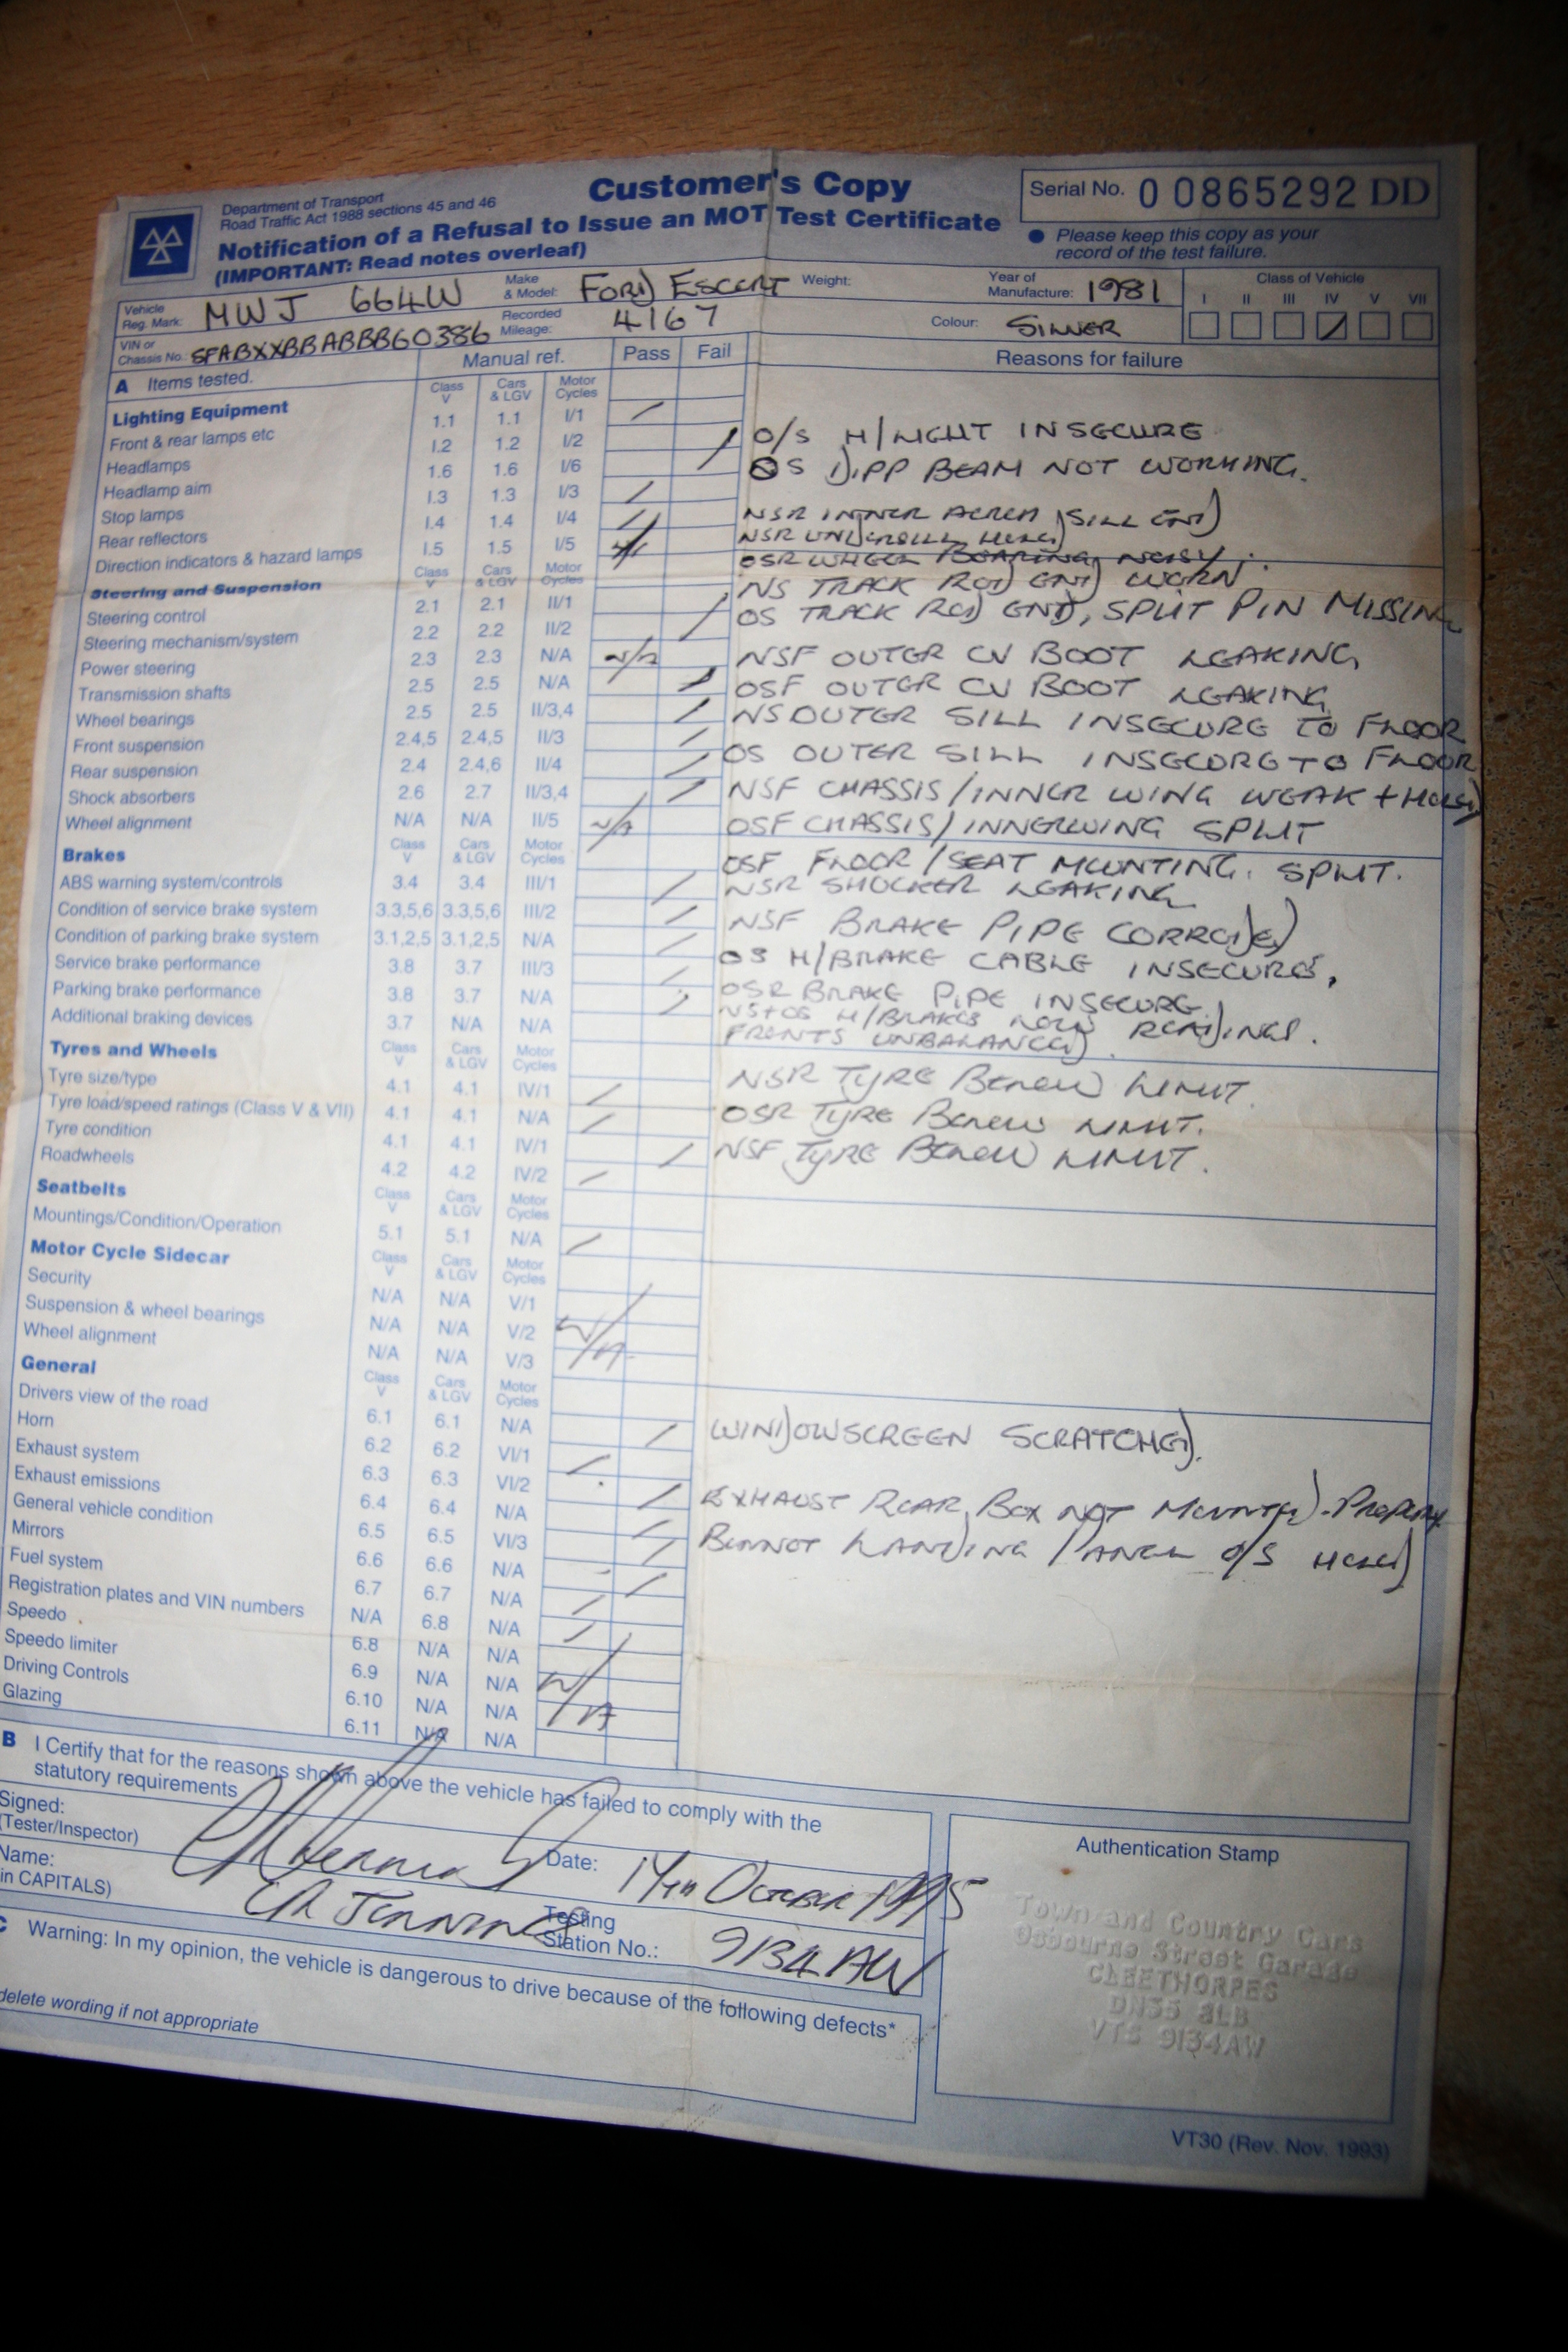 Department of Transport
Road Traffic Act 1988 sections 45 and 46
Customer's Copy
Notification of a Refusal to Issue an MOT Test Certificate
(IMPORTANT: Read notes overleaf)
Serial No. 0 0865292 DD
● Please keep this copy as your
record of the test failure.
Vehicle Reg. Mark: MWJ 664W Make & Model: FORD ESCORT Weight: Year of Manufacture: 1981 Class of Vehicle
I II III IV V VII
VIN or Chassis No.: SFABXXBBABBBG0386 Recorded Mileage: 4167 Colour: SILVER
A Items tested. Manual ref. Pass Fail Reasons for failure
Lighting Equipment Class V Cars & LGV Motor Cycles
Front & rear lamps etc 1.1 1.1 I/1
Headlamps 1.2 1.2 I/2
Headlamp aim 1.6 1.6 I/6
Stop lamps 1.3 1.3 I/3
Rear reflectors 1.4 1.4 I/4
Direction indicators & hazard lamps 1.5 1.5 I/5
O/S H/LIGHT INSECURE
OS DIPP BEAM NOT WORKING.
NSR INNER SILL END
NSR
OSR WHEEL BEARING NOISY.
Steering and Suspension Class V Cars & LGV Motor Cycles
Steering control 2.1 2.1 II/1
Steering mechanism/system 2.2 2.2 II/2
Power steering 2.3 2.3 N/A N/A
Transmission shafts 2.5 2.5 N/A
Wheel bearings 2.5 2.5 II/3,4
Front suspension 2.4,5 2.4,5 II/3
Rear suspension 2.4 2.4,6 II/4
Shock absorbers 2.6 2.7 II/3,4
Wheel alignment N/A N/A II/5 N/A
NS TRACK ROD END WORN
OS TRACK ROD END, SPLIT PIN MISSING
NSF OUTER CV BOOT LEAKING
OSF OUTER CV BOOT LEAKING
NS OUTER SILL INSECURE TO FLOOR
OS OUTER SILL INSECURE TO FLOOR
NSF CHASSIS/INNER WING WEAK + HOLED
OSF CHASSIS/INNERWING SPLIT
OSF FLOOR/SEAT MOUNTING. SPLIT.
NSR SHOCKER LEAKING
Brakes Class V Cars & LGV Motor Cycles
ABS warning system/controls 3.4 3.4 III/1
Condition of service brake system 3.3,5,6 3.3,5,6 III/2
Condition of parking brake system 3.1,2,5 3.1,2,5 N/A
Service brake performance 3.8 3.7 III/3
Parking brake performance 3.8 3.7 N/A
Additional braking devices 3.7 N/A N/A
NSF BRAKE PIPE CORRODED
OS H/BRAKE CABLE INSECURE.
OSR BRAKE PIPE INSECURE
NS+OS H/BRAKES LOW READINGS.
FRONTS UNBALANCED.
Tyres and Wheels Class V Cars & LGV Motor Cycles
Tyre size/type 4.1 4.1 IV/1
Tyre load/speed ratings (Class V & VII) 4.1 4.1 N/A
Tyre condition 4.1 4.1 IV/1
Roadwheels 4.2 4.2 IV/2
NSR TYRE BELOW LIMIT.
OSR TYRE BELOW LIMIT.
NSF TYRE BELOW LIMIT.
Seatbelts Class V Cars & LGV Motor Cycles
Mountings/Condition/Operation 5.1 5.1 N/A
Motor Cycle Sidecar Class V Cars & LGV Motor Cycles
Security N/A N/A V/1
Suspension & wheel bearings N/A N/A V/2 N/A
Wheel alignment N/A N/A V/3
General Class V Cars & LGV Motor Cycles
Drivers view of the road 6.1 6.1 N/A
Horn 6.2 6.2 VI/1
Exhaust system 6.3 6.3 VI/2
Exhaust emissions 6.4 6.4 N/A
General vehicle condition 6.5 6.5 VI/3
Mirrors 6.6 6.6 N/A
Fuel system 6.7 6.7 N/A
Registration plates and VIN numbers N/A 6.8 N/A
Speedo 6.8 N/A N/A
Speedo limiter 6.9 N/A N/A N/A
Driving Controls 6.10 N/A N/A
Glazing 6.11 N/A N/A
WINDOWSCREEN SCRATCHED.
EXHAUST REAR BOX NOT MOUNTED PROPERLY
BONNET LANDING PANEL O/S HOLED
B I Certify that for the reasons shown above the vehicle has failed to comply with the
statutory requirements
Signed:
(Tester/Inspector)
Date: 17TH OCTOBER 1995
Name:
in CAPITALS) JENNINGS
Testing Station No.: 9134AW
C Warning: In my opinion, the vehicle is dangerous to drive because of the following defects*
delete wording if not appropriate
Authentication Stamp
Town and Country Cars
Osbourne Street Garage
CLEETHORPES
DN35 8LB
VTS 9134AW
VT30 (Rev. Nov. 1993)